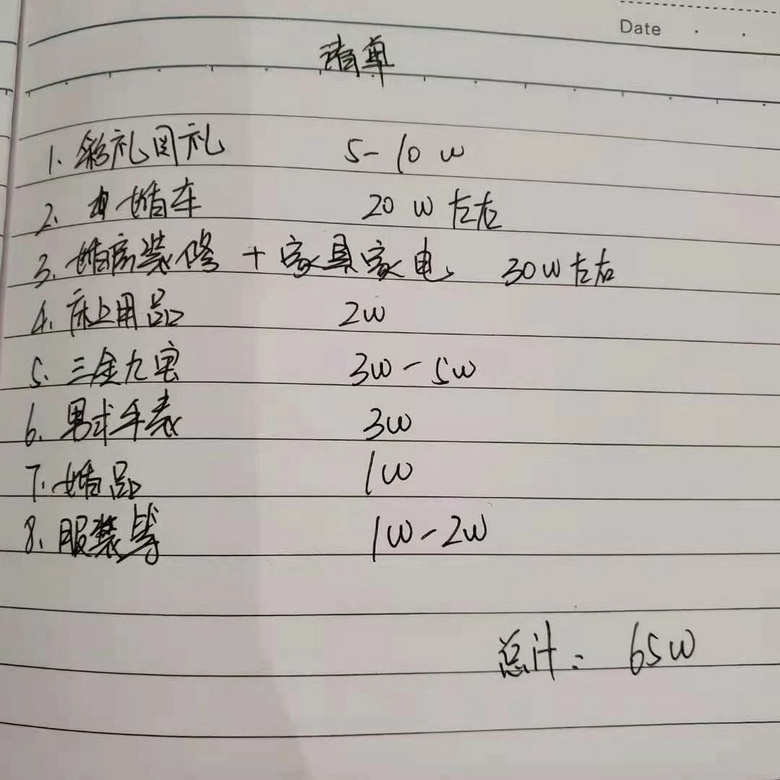 Date
清单
1. 彩礼回礼 5-10w
2. 婚车 20w左右
3. 婚房装修 + 家具家电 30w左右
4. 床上用品 2w
5. 三金九宝 3w-5w
6. 男式手表 3w
7. 婚品 1w
8. 服装等 1w-2w
总计: 65w